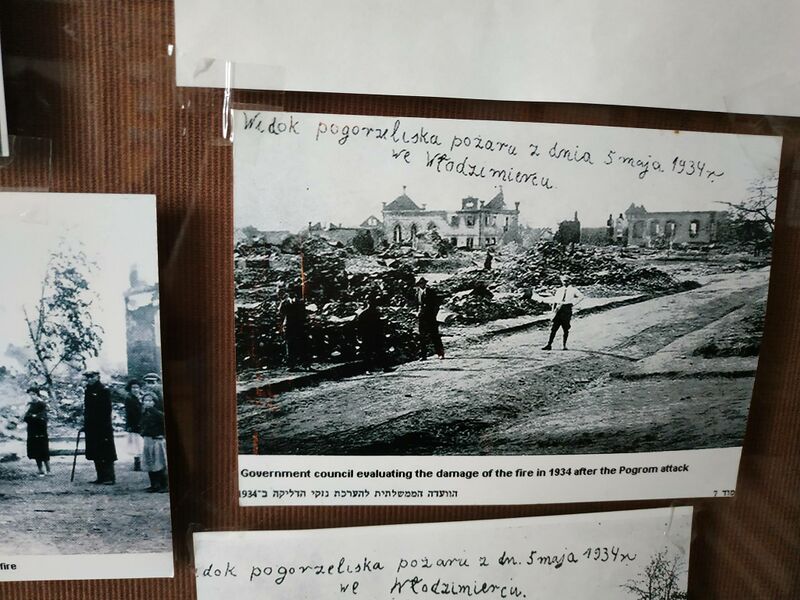 Widok pogorzeliska pożaru z dnia 5 maja 1934 r.
we Włodzimiercu.
Government council evaluating the damage of the fire in 1934 after the Pogrom attack
הוועדה הממשלתית להערכת נזקי הדליקה ב־1934
7
fire
dok pogorzeliska pożaru z dn. 5 maja 1934 r.
we Włodzimiercu.